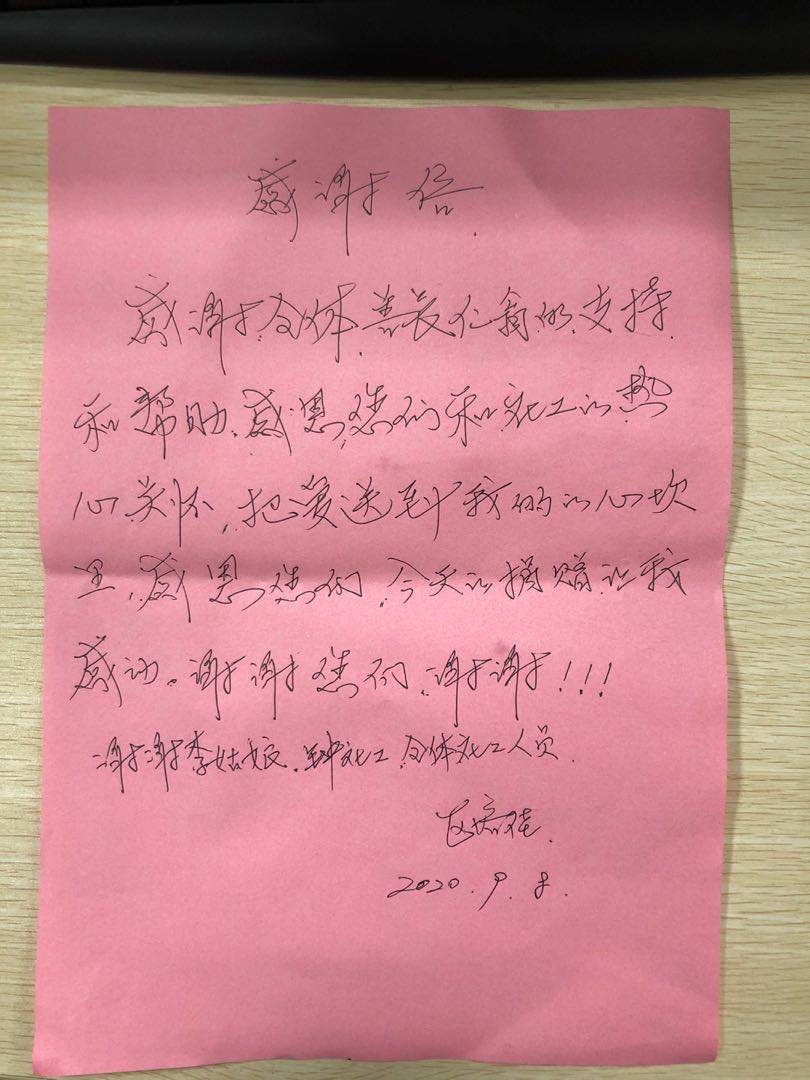 感谢信
感谢全体善长仁翁的支持
和帮助，感恩您们和社工的热
心关怀，把爱送到我们的心坎
里，感恩您们，今天的捐赠让我
感动。谢谢您们，谢谢！！！
谢谢李姑娘、社工、全体社工人员
2020.9.8.